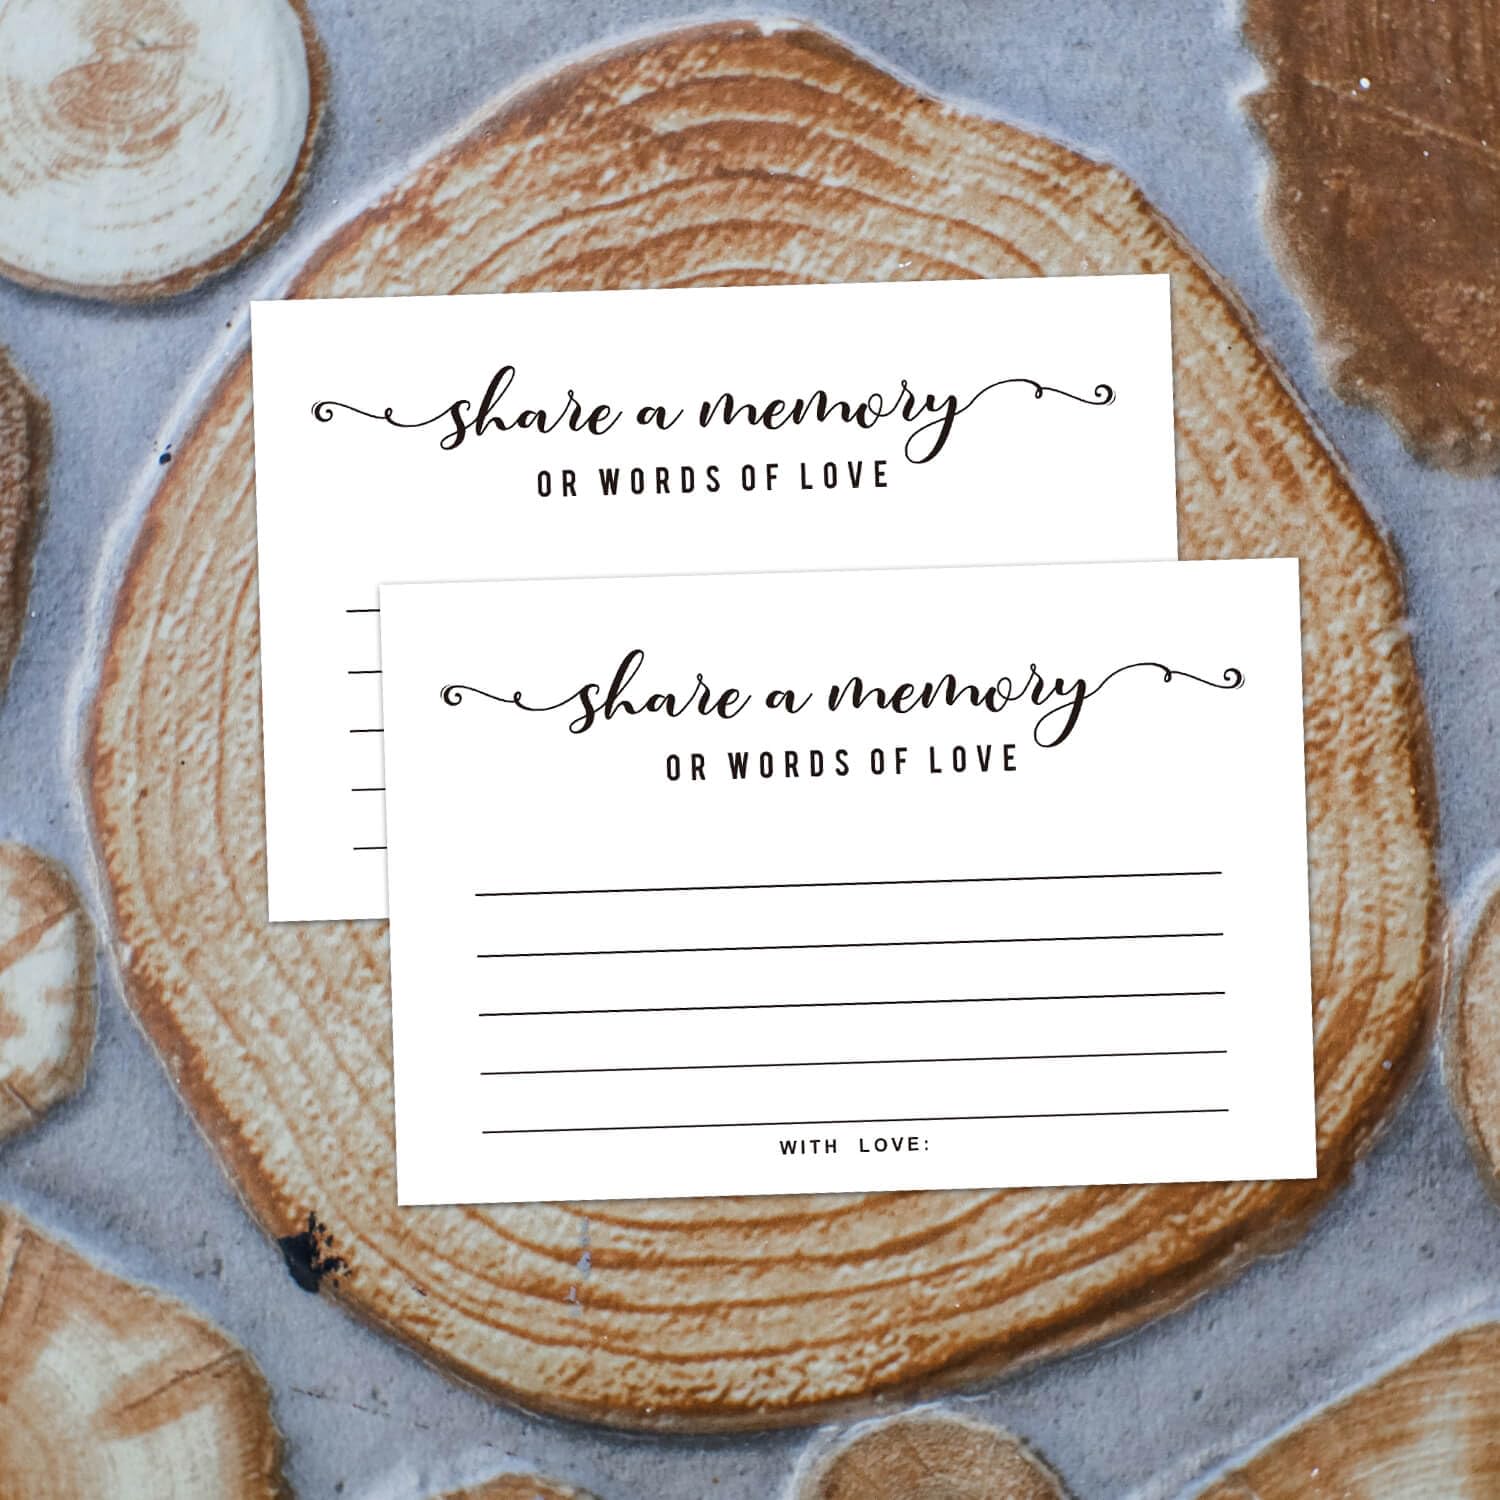 share a memory
OR WORDS OF LOVE
share a memory
OR WORDS OF LOVE
WITH LOVE: